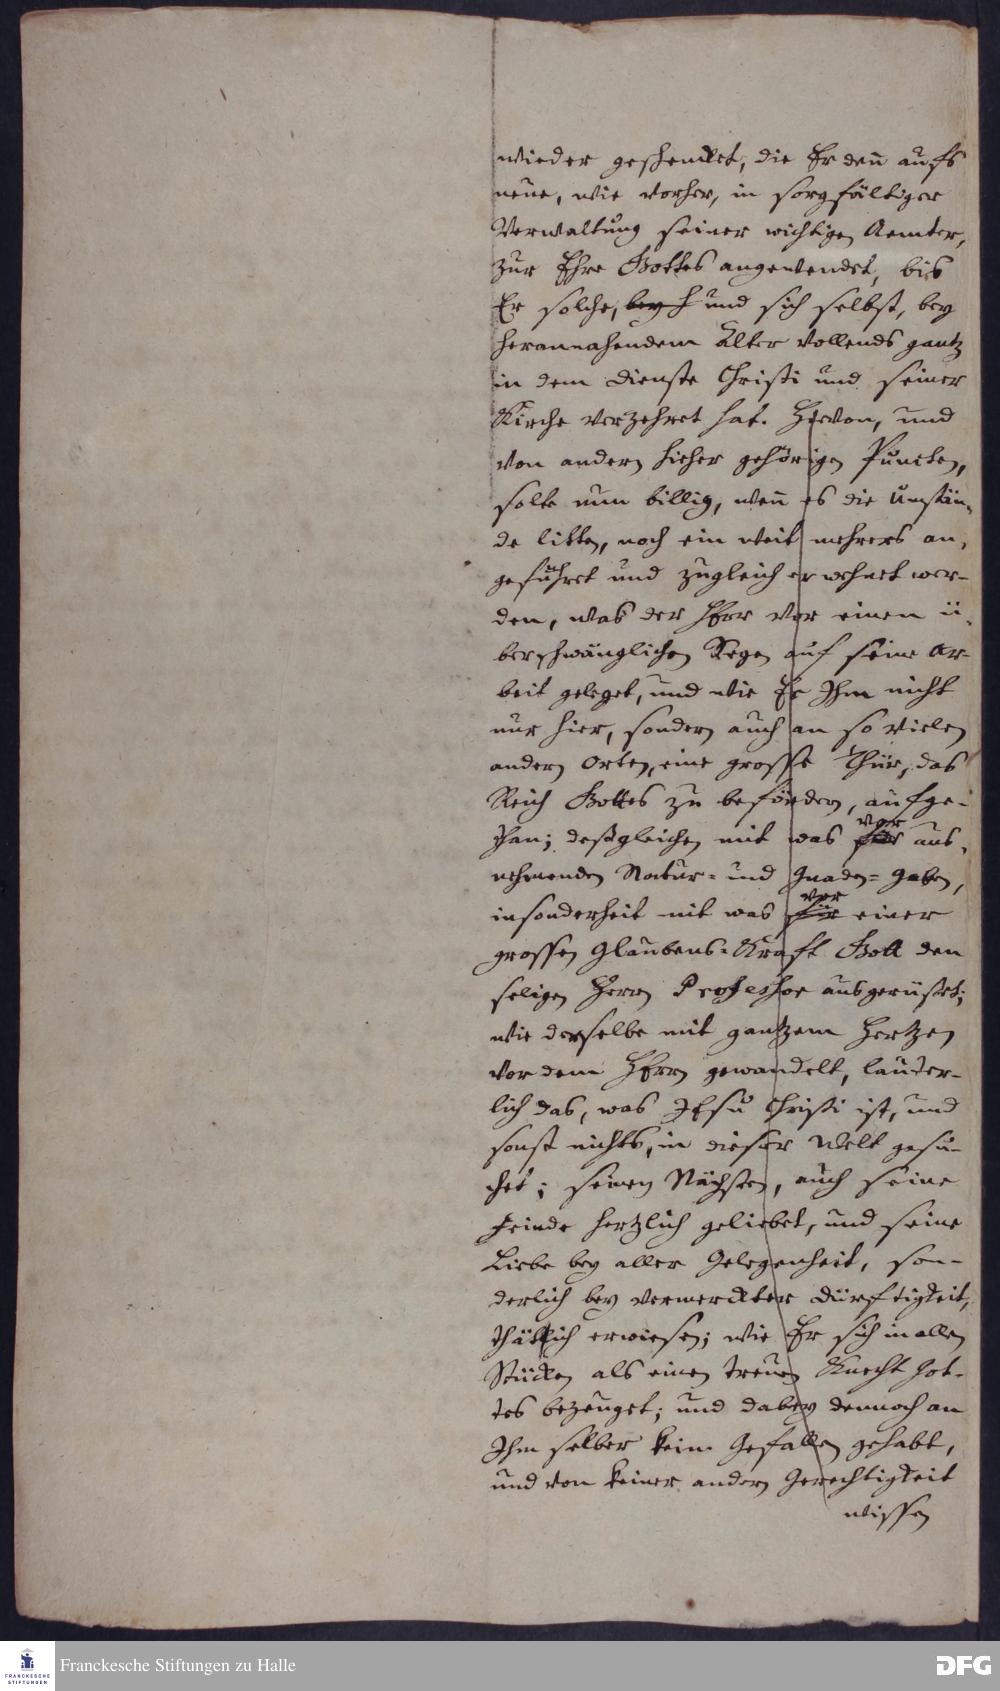 wieder geschencket, die Er deñ aufs
neue, wie vorher, in sorgfältiger
Verwaltung seiner wichtigen Aemter,
zur Ehre Gottes angewendet, bis
Er solche, bey und sich selbst, bey
herannahendem Alter vollends gantz
in dem Dienste Christi und seiner
Kirche verzehret hat. Hievon, und
von andern hieher gehörigen Puncten,
solte nun billig, weñ es die Umstän-
de litten, noch ein weit mehrers an-
geführet und zugleich erwehnet wer-
den, was der HErr vor einen ü-
berschwänglichen Segen auf seine Ar-
beit geleget, und wie Er Ihm nicht
nur hier, sondern auch an so vielen
andern Orten, eine grosse Thür, das
Reich Gottes zu befördern, aufge-
than; desgleichen mit was für vor aus-
nehmenden Natur- und Gnaden-Gaben,
insonderheit mit was für vor einer
grossen Glaubens-Kraft Gott den
seligen Herrn Professor ausgerüstet;
wie derselbe mit gantzem Hertzen
vor dem HErrn gewandelt, lauter-
lich das, was JEsu Christi ist, und
sonst nichts, in dieser Welt gesu-
chet; seinen Nächsten, auch seine
Feinde hertzlich geliebet, und seine
Liebe bey aller Gelegenheit, son-
derlich bey vermerckter Dürftigkeit,
thätlich erwiesen; wie Er sich in allen
Stücken als einen treuen Knecht Got-
tes bezeuget; und dabey dennoch an
Ihm selber kein Gefallen gehabt,
und von keiner andern Gerechtigkeit
wissen
Franckesche Stiftungen zu Halle
FRANCKESCHE
STIFTUNGEN
DFG